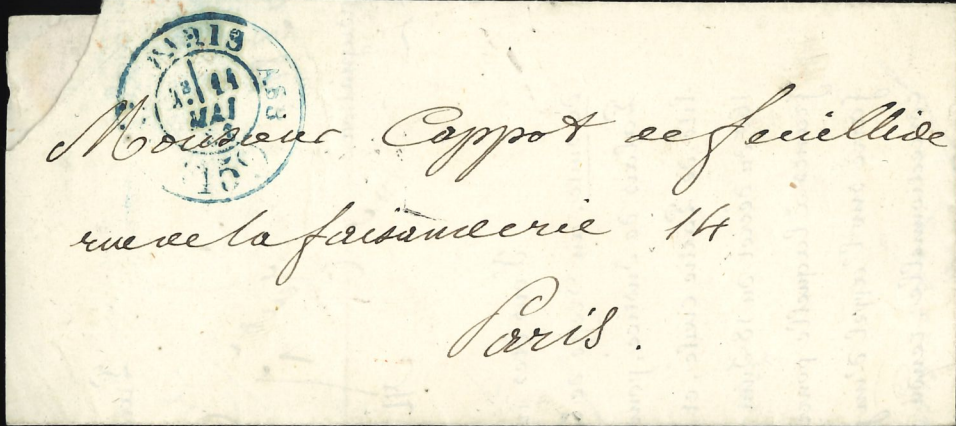 PARIS
11
MAI
15c
Monsieur Cappot de feuillide
rue de la faisanderie 14
Paris.